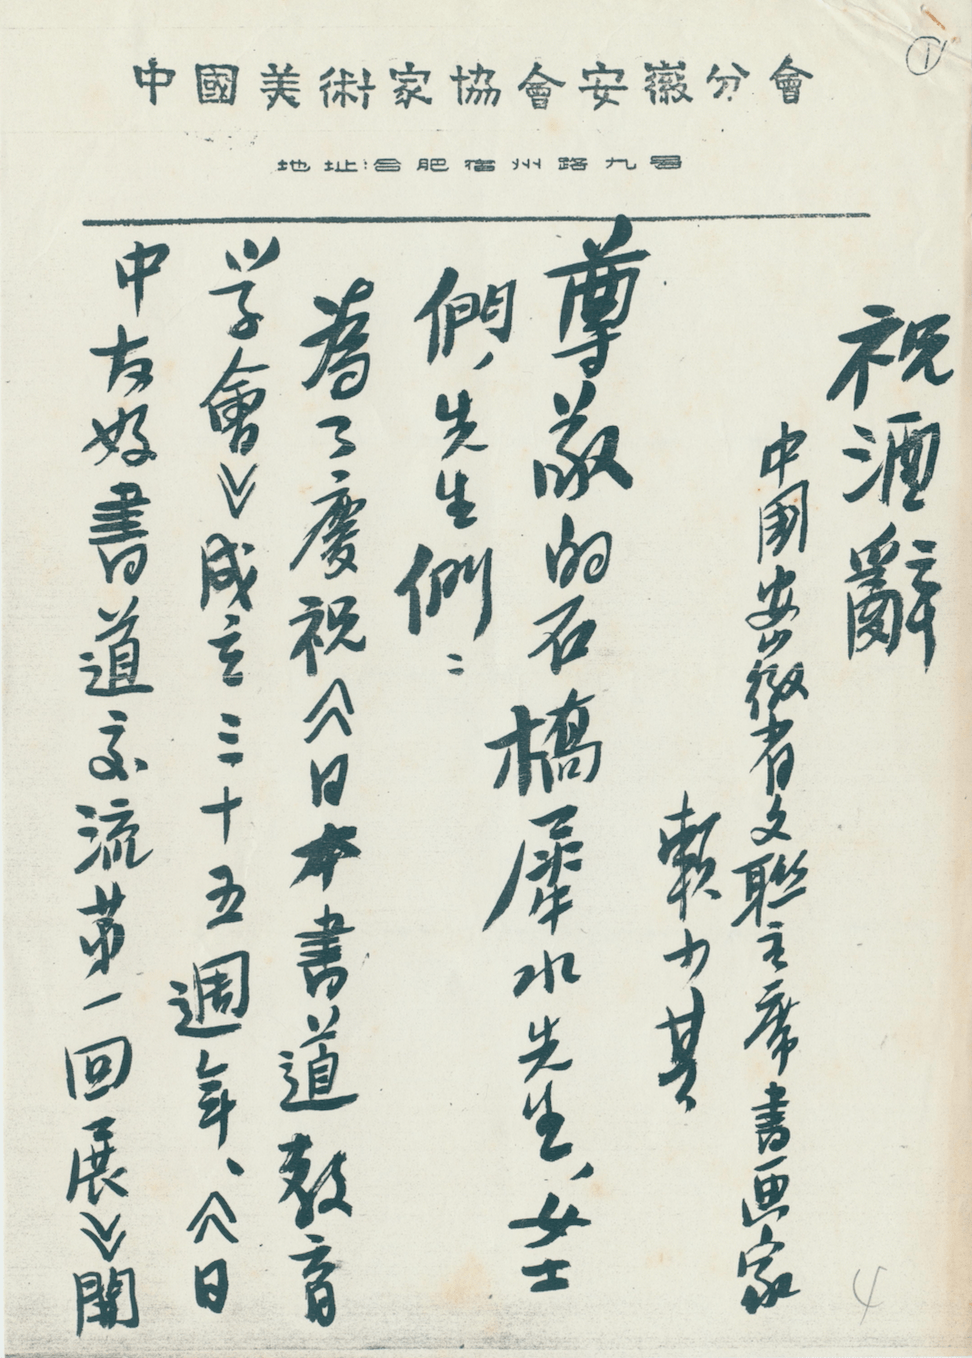 ①
中國美術家協會安徽分會
地址:合肥宿州路九号
祝酒辭
中国安徽省文聯主席書画家
賴少其
尊敬的石橋犀水先生、女士
們、先生們：
為了慶祝《日本書道教育
学會》成立三十五週年、《日
中友好書道交流第一回展》開
4